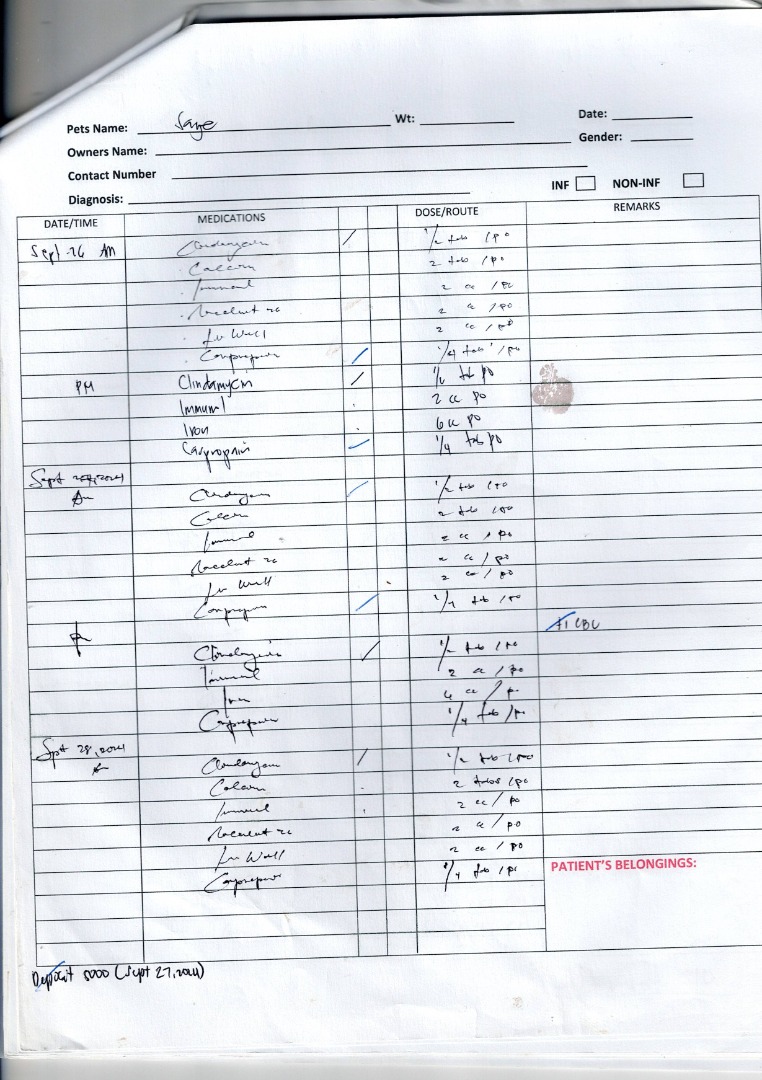 Pets Name: Sarge Wt: Date:
Owners Name: Gender:
Contact Number
Diagnosis: INF NON-INF
DATE/TIME MEDICATIONS DOSE/ROUTE REMARKS
Sept 26 AM Clindamycin / 1/2 tab / po
2 tab / po
Immunol 2 cc / po
2 cc / po
Liv Well 2 cc / po
Carprofen / 1/4 tab / po
PM Clindamycin / 1/2 tab po
Immunol 2 cc po
Iron 6 cc po
Carprofen 1/4 tab po
Sept 27, 2024
Am Clindamycin / 1/2 tab / po
2 tab / po
Immunol 2 cc / po
2 cc / po
Liv Well 2 cc / po
Carprofen / 1/4 tab / po
CBC
Clindamycin / 1/2 tab / po
Immunol 2 cc / po
Iron cc / po
Carprofen 1/4 tab / po
Sept 28, 2024
Clindamycin / 1/2 tab / po
2 tabs / po
Immunol 2 cc / po
2 cc / po
Liv Well 2 cc / po
Carprofen 1/4 tab / po
PATIENT'S BELONGINGS:
Deposit 5000 (Sept 27, 2024)